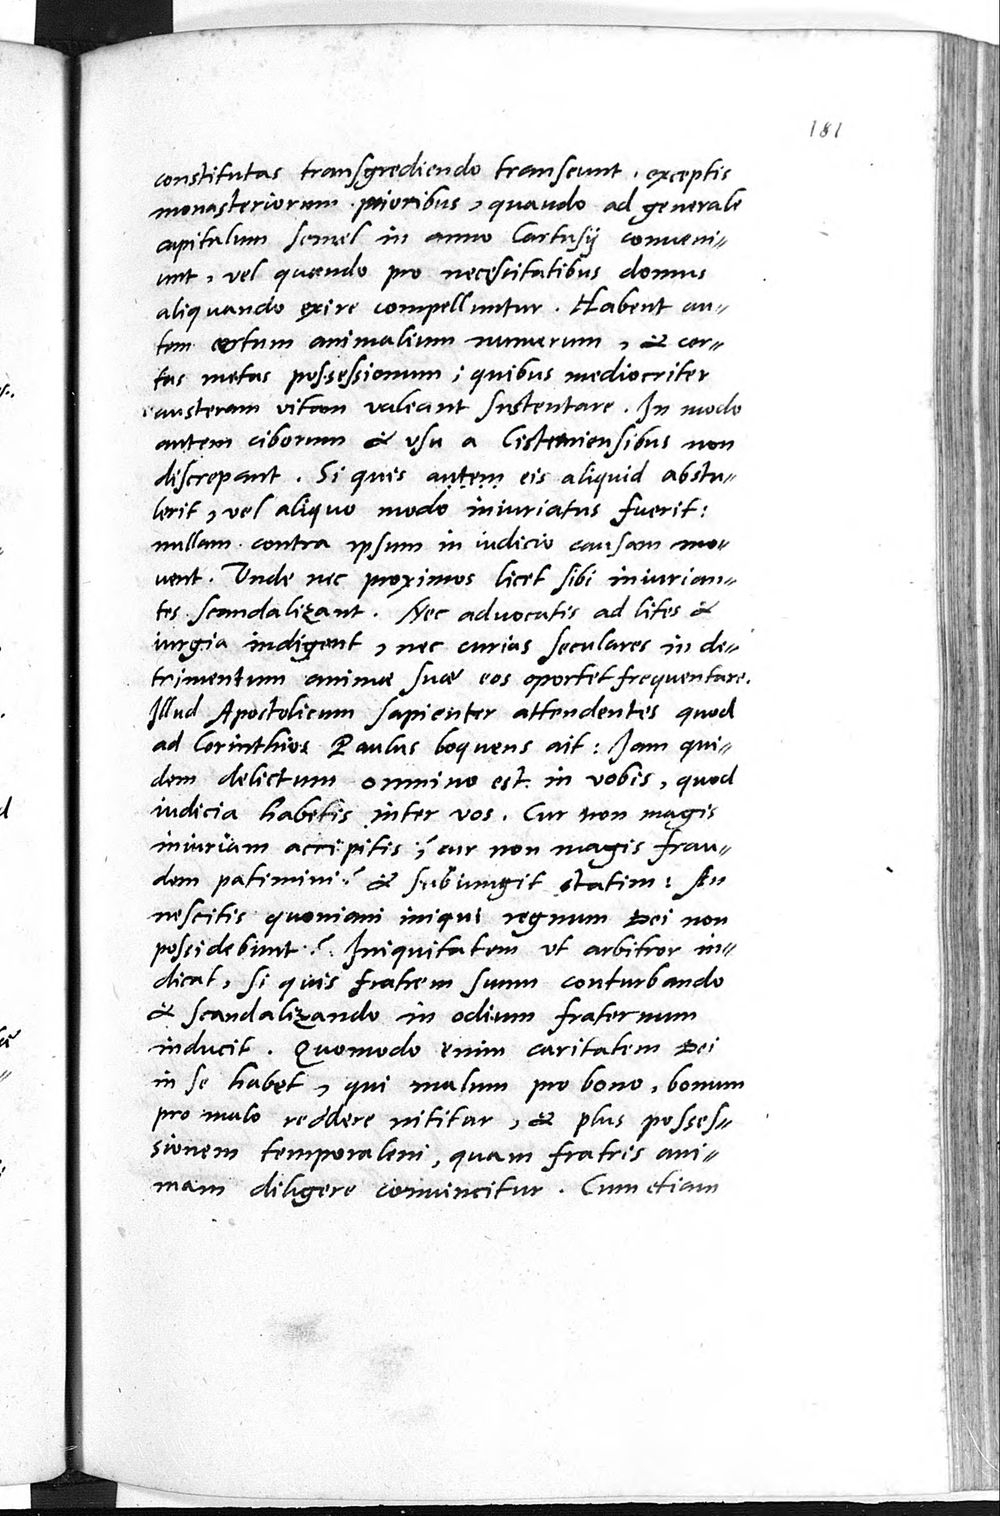 181
constitutas transgrediendo transeunt. exceptis
monasteriorum prioribus, quando ad generale
capitulum semel in anno Cartusij conveni〃
unt, vel quando pro necessitatibus domus
aliquando exire compelluntur. Habent au〃
tem certum animalium numerum, & cer〃
tas metas possessionum; quibus mediocriter
austeram vitam valeant sustentare. In modo
autem ciborum & usu a Cisterniensibus non
discrepant. Si quis autem eis aliquid abstu〃
lerit, vel aliquo modo iniuriatus fuerit:
nullam contra ipsum in iudicio causam mo〃
vent. Unde nec proximos licet sibi iniurian〃
tes scandalizant. Nec advocatis ad lites &
iurgia indigent, nec curias seculares in de〃
trimentum animæ suæ eos oportet frequentare.
Illud Apostolicum sapienter attendentes quod
ad Corinthios Paulus loquens ait: Jam qui〃
dem delictum omnino est in vobis, quod
iudicia habetis inter vos. Cur non magis
iniuriam accipitis? cur non magis frau〃
dem patimini? & subiungit statim: An
nescitis quoniam iniqui regnum Dei non
possidebunt? Iniquitatem ut arbitror in〃
dicat, si quis fratrem suum conturbando
& scandalizando in odium fraternum
inducit. Quomodo enim caritatem Dei
in se habet, qui malum pro bono, bonum
pro malo reddere nititur, & plus posses〃
sionem temporalem, quam fratris ani〃
mam diligere convincitur. Cum etiam